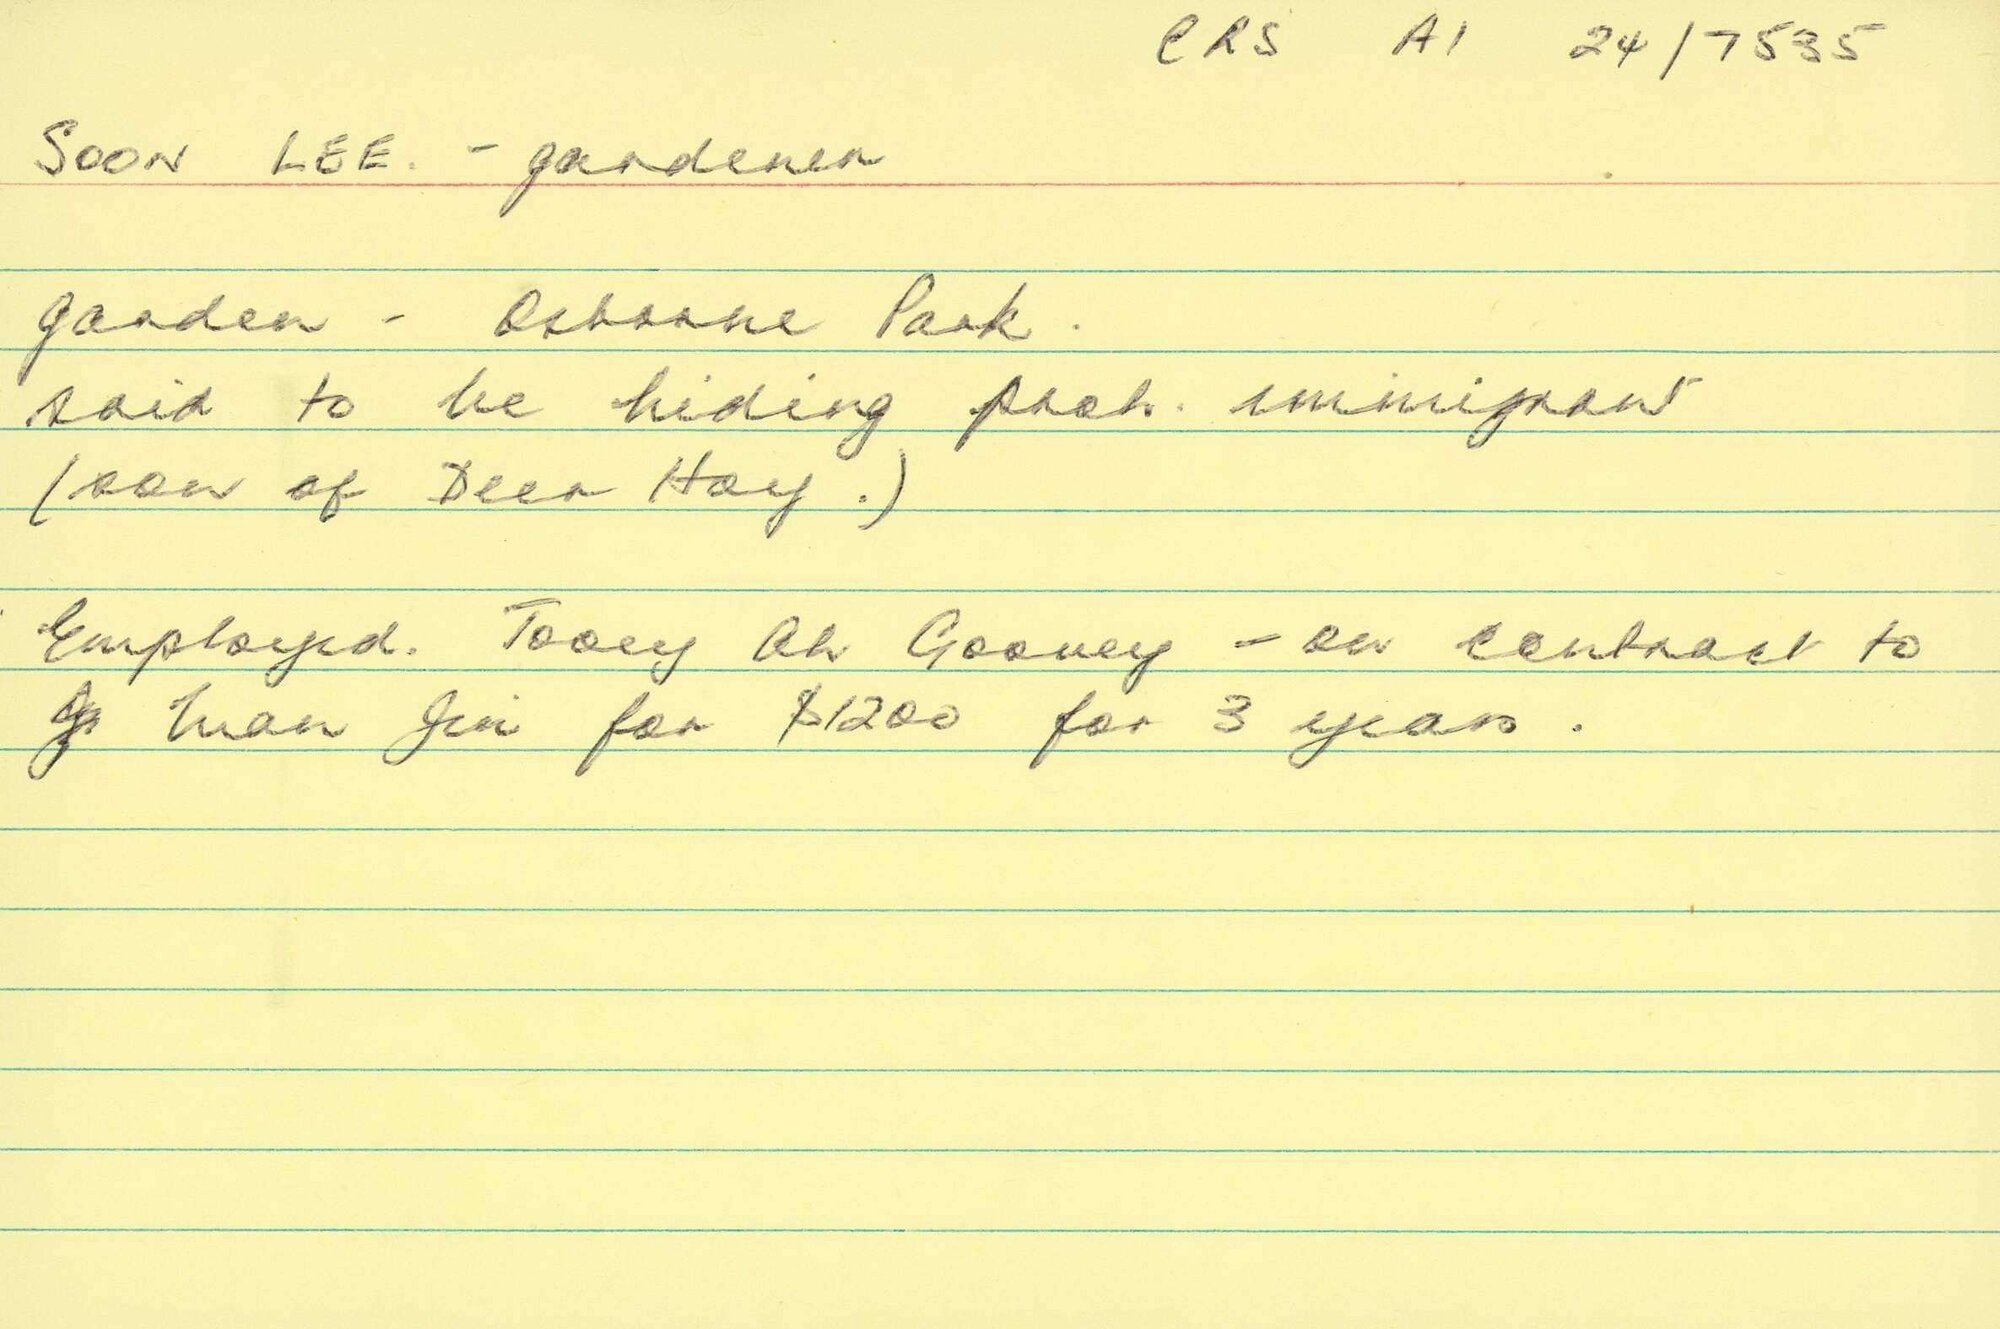 CRS A1 24/7535
SOON LEE. - gardener
garden - Osborne Park.
said to be hiding proh. immigrant
(son of Deer Hoy.)
Employed. Tooey Ah Gooney - on contract to
Man Jin for $1200 for 3 years.